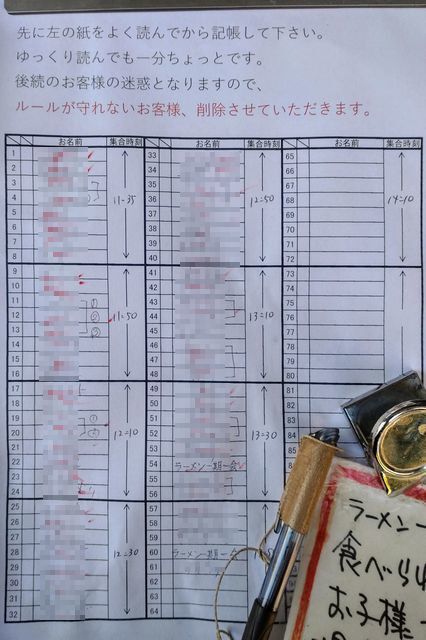 先に左の紙をよく読んでから記帳して下さい。
ゆっくり読んでも一分ちょっとです。
後続のお客様の迷惑となりますので、
ルールが守れないお客様、削除させていただきます。
お名前 集合時刻 お名前 集合時刻 お名前 集合時刻
1 33 65
2 34 66
3 35 67
4 11-35 36 12=50 68 14=10
5 37 69
6 38 70
7 39 71
8 40 72
9 41 73
10 42 74
11 43 75
12 11=50 44 13=10 76
13 45 77
14 46 78
15 47 79
16 48 80
17 49 81
18 50 82
19 51 83
20 12=10 52 13=30 84
21 53
22 54 ラーメン一期一会
23 55
24 56
25 57
26 58
27 59
28 12=30 60 ラーメン一期一会
29 61
30 62
31 63
32 64
ラーメン一
食べられ
お子様